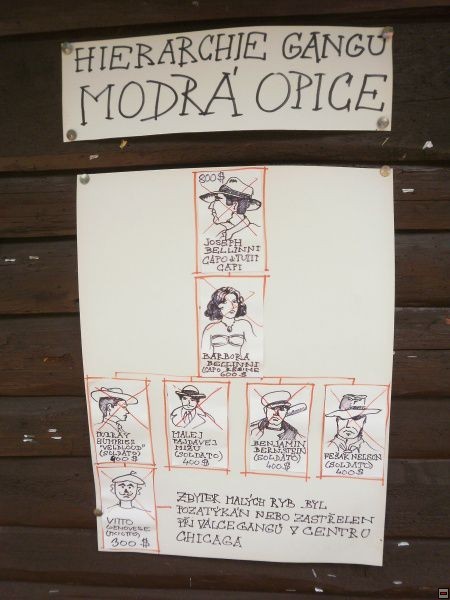 HIERARCHIE GANGU
MODRÁ OPICE
800 $
JOSEPH
BELLINNI
CAPO di TUTTI
CAPI
BARBORA
BELLINNI
600 $
MURRAY
HUMPRIES
"VELBLOUD"
(SOLDATO)
400 $
MALEJ
PAJDAVEJ
MIZU
(SOLDATO)
400 $
BENJAMIN
BERNSTEIN
(SOLDATO)
400 $
PEŠÁK NELSON
(SOLDATO)
400 $
VITTO
GENOVESE
300 $
ZBYTEK MALÝCH RYB BYL
POZATYKÁN NEBO ZASTŘELEN
PŘI VÁLCE GANGŮ V CENTRU
CHICAGA